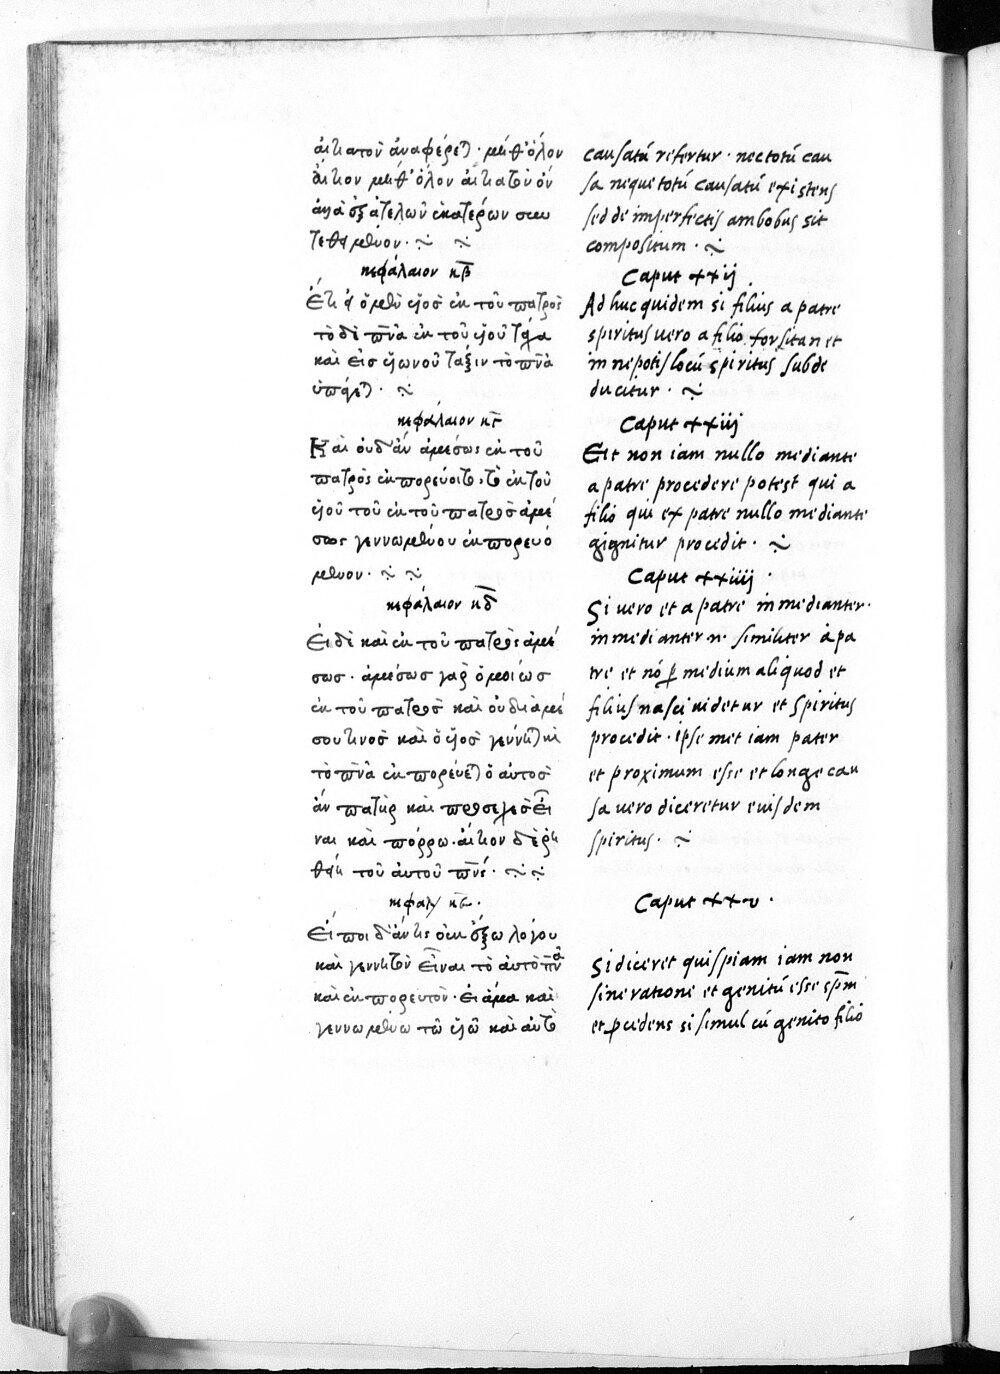 αἰτιατοῦ ἀναφέρεται· μήθ' ὅλον
αἴτιον μήθ' ὅλον αἰτιατὸν ὂν
ἀλλὰ ἐξ ἀτελῶν ἑκατέρων συν
τεθειμένον·
κεφάλαιον κβ
Ἔτι εἰ ὁ μὲν υἱὸς ἐκ τοῦ πατρὸς
τὸ δὲ πνα ἐκ τοῦ υἱοῦ τάχα
καὶ εἰς υἱωνοῦ τάξιν τὸ πνα
ὑπάγεται·
κεφάλαιον κγ
Καὶ οὐδ' ἂν ἀμέσως ἐκ τοῦ
πατρὸς ἐκπορεύοιτο, τὸ ἐκ τοῦ
υἱοῦ τοῦ ἐκ τοῦ πατρὸς ἀμέ
σως γεννωμένου ἐκπορευό
μενον·
κεφάλαιον κδ
Εἰ δὲ καὶ ἐκ τοῦ πατρὸς ἀμέ
σως· ἀμέσως γὰρ ὁμοίως
ἐκ τοῦ πατρὸς καὶ οὐ διὰ μέ
σου τινὸς καὶ ὁ υἱὸς γεννᾶται καὶ
τὸ πνα ἐκπορεύεται ὁ αὐτὸς
ἂν πατὴρ καὶ προσεχὲς εἶ
ναι καὶ πόρρω αἴτιον
τοῦ αὐτοῦ πνς·
κεφαλ κε·
Εἴποι δ' ἄν τις οὐκ ἔξω λόγου
καὶ γεννητὸν εἶναι τὸ αὐτὸ πνα
καὶ ἐκπορευτόν· εἰ ἅμα καὶ
γεννωμένω τῶ υἱῶ καὶ αὐτὸ
causatũ refertur · nec totũ cau
sa neque totũ causatũ existens
sed de imperfectis ambobus sit
compositum ·
Caput xxij
Ad huc quidem si filius a patre
spiritus uero a filio forsitan et
in nepotis locũ spiritus subde
ducitur ·
Caput xxiij
Eit non iam nullo mediante
a patre procedere potest qui a
filio qui ex patre nullo mediante
gignitur procedit ·
Caput xxiiij ·
Si uero et a patre inmedianter ·
inmedianter n· similiter a pa
tre et nõ ꝑ medium aliquod et
filius nasci uidetur et spiritus
procedit · ipse met iam pater
et proximum esse et longe cau
sa uero diceretur euisdem
spiritus ·
Caput xxv ·
Si diceret quispiam iam non
sine ratione et genitũ esse spm̃
et ꝓcedens si simul cũ genito filio